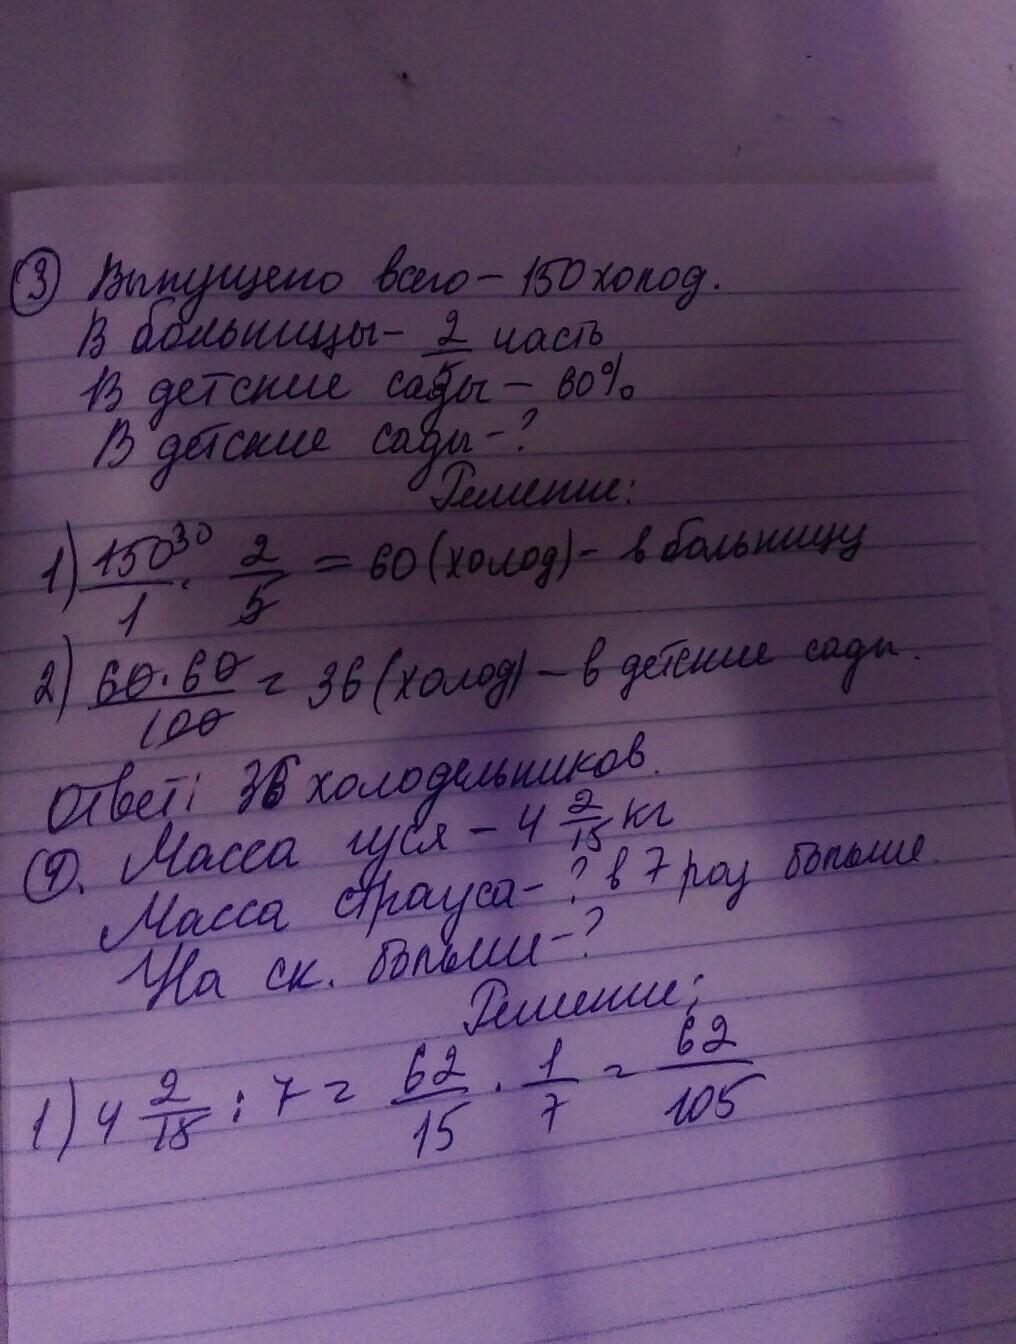 ③ Выпущено всего – 150 холод.
В больницы – 2/5 часть
В детские сады – 60%
В детские сады – ?
Решение:
1) 150³⁰/1 · 2/5 = 60 (холод) – в больницу
2) 60·60/100 = 36 (холод) – в детские сады.
Ответ: 36 холодельников.
④. Масса гуся – 4 2/15 кг
Масса страуса – ? в 7 раз больше.
На ск. больше – ?
Решение:
1) 4 2/15 : 7 = 62/15 · 1/7 = 62/105